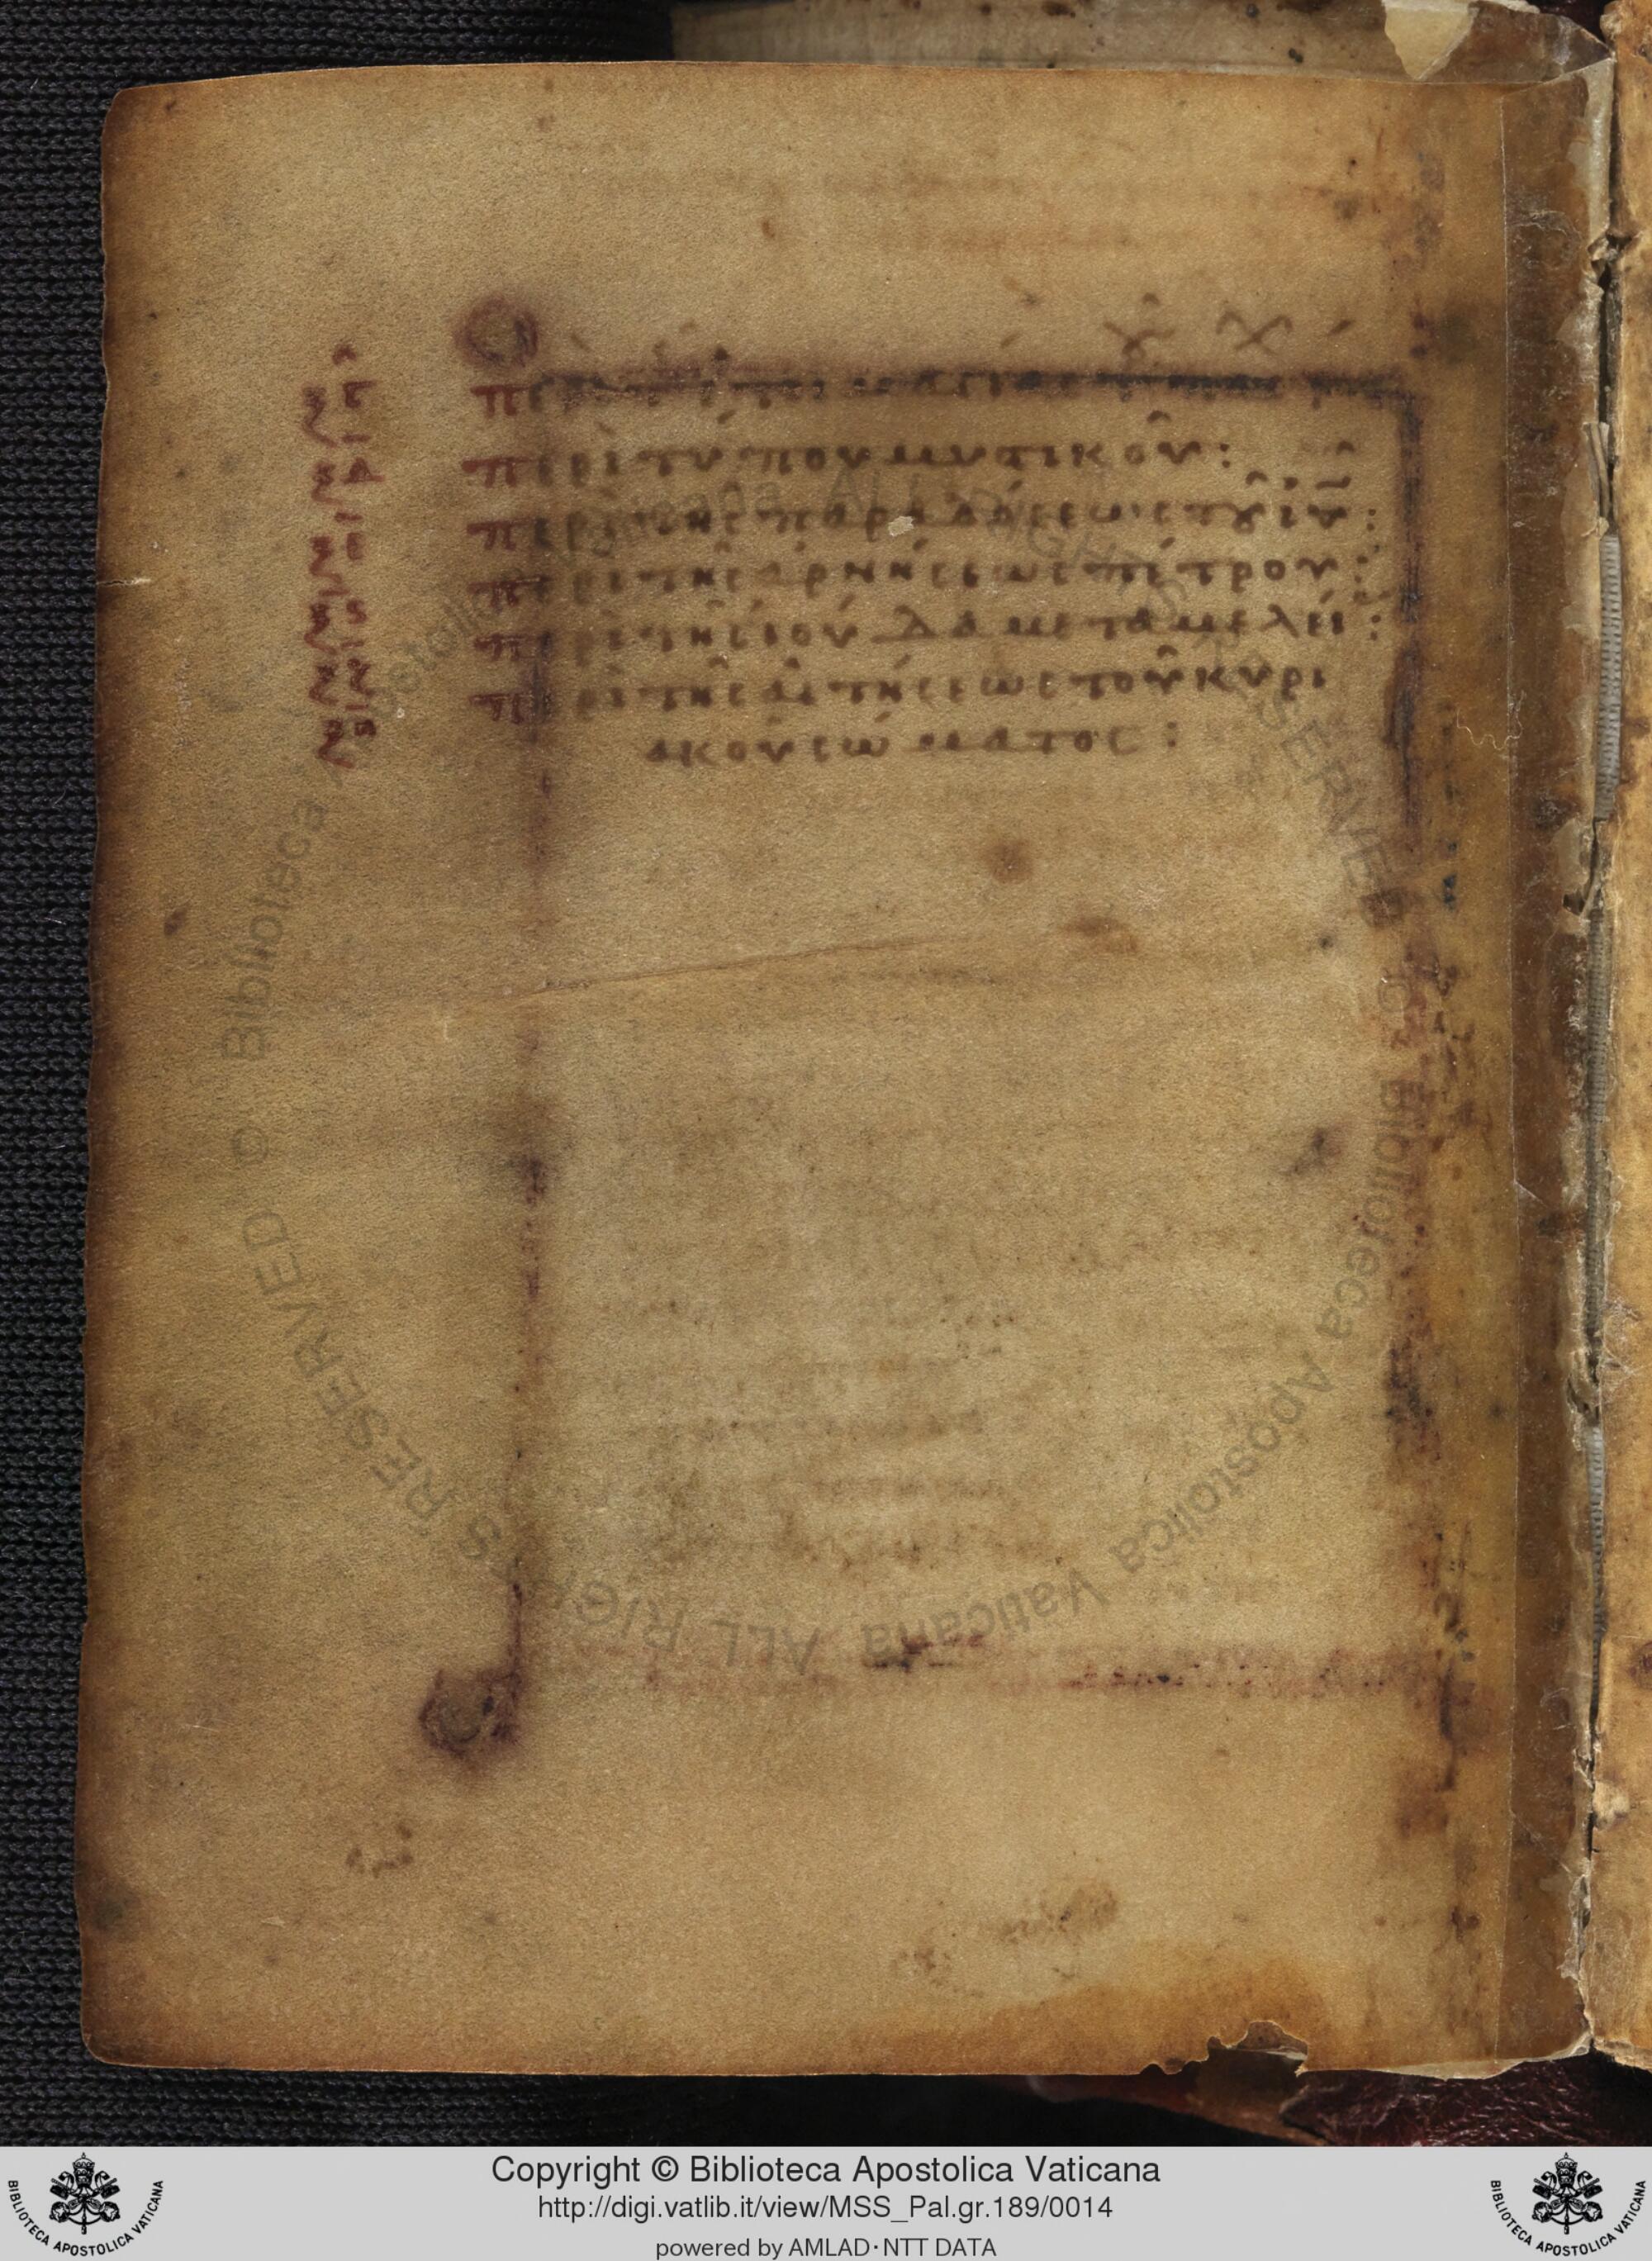 ξγ
ξδ περὶ τύπου μυστικοῦ :
ξε περὶ τῆς παραδόσεως τοῦ ιυ :
ξς περὶ τῆς ἀρνήσεως πέτρου :
ξζ περὶ τῆς ἰούδα μεταμελεί :
ξη περὶ τῆς αἰτήσεως τοῦ κυρι
ακοῦ σώματος :
© Biblioteca Apostolica Vaticana ALL RIGHTS RESERVED
© Biblioteca Apostolica Vaticana ALL RIGHTS RESERVED
Copyright © Biblioteca Apostolica Vaticana
http://digi.vatlib.it/view/MSS_Pal.gr.189/0014
powered by AMLAD·NTT DATA
BIBLIOTECA APOSTOLICA VATICANA
BIBLIOTECA APOSTOLICA VATICANA